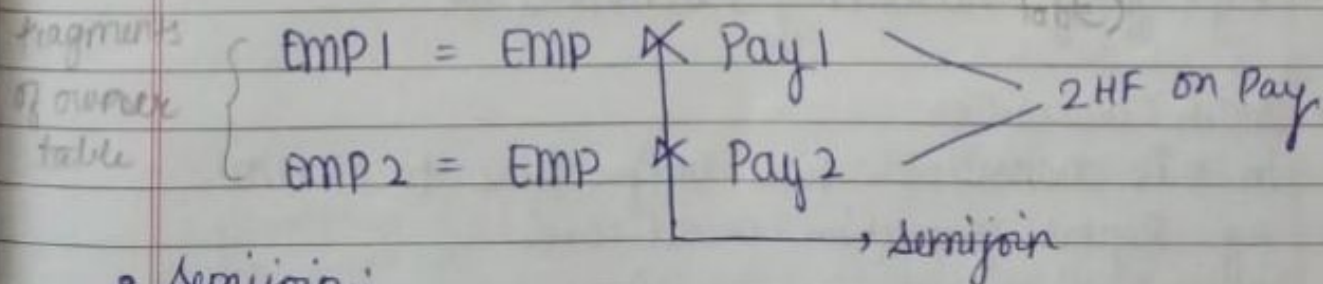 fragments
of owner
table
EMP1 = EMP ⋉ Pay1
EMP2 = EMP ⋉ Pay2
2HF on Pay
→ Semijoin
• Semijoin :